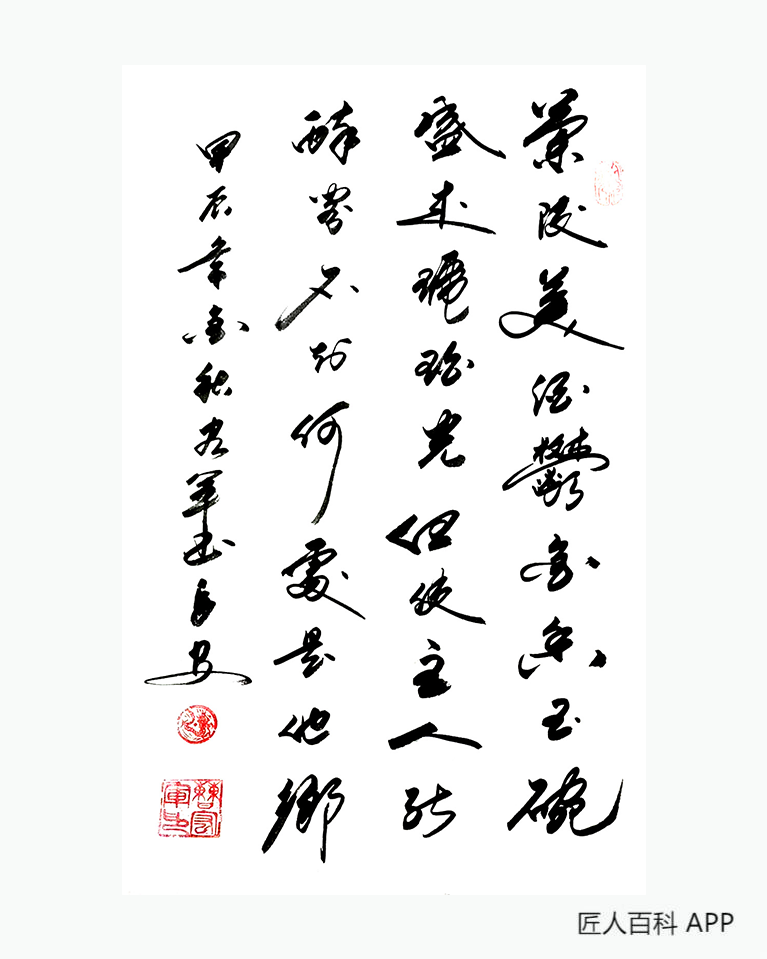 蘭陵美酒鬱金香玉碗
盛来琥珀光但使主人能
醉客不知何處是他鄉
甲辰年金秋軍书长安
匠人百科 APP